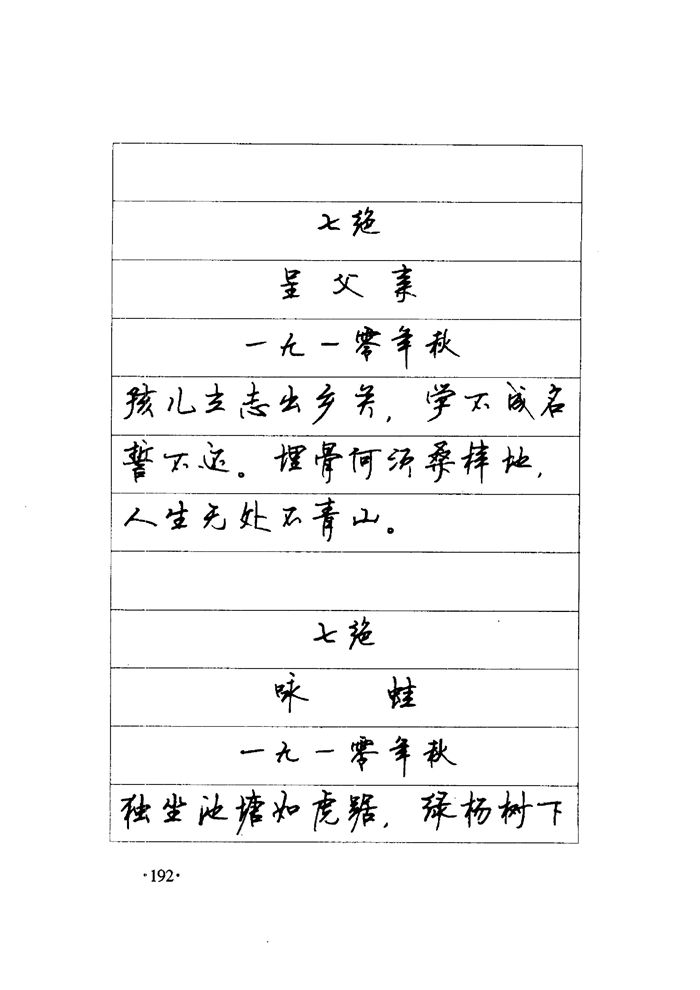 七绝
呈父亲
一九一零年秋
孩儿立志出乡关，学不成名
誓不还。埋骨何须桑梓地，
人生无处不青山。
七绝
咏 蛙
一九一零年秋
独坐池塘如虎踞，绿杨树下
·192·